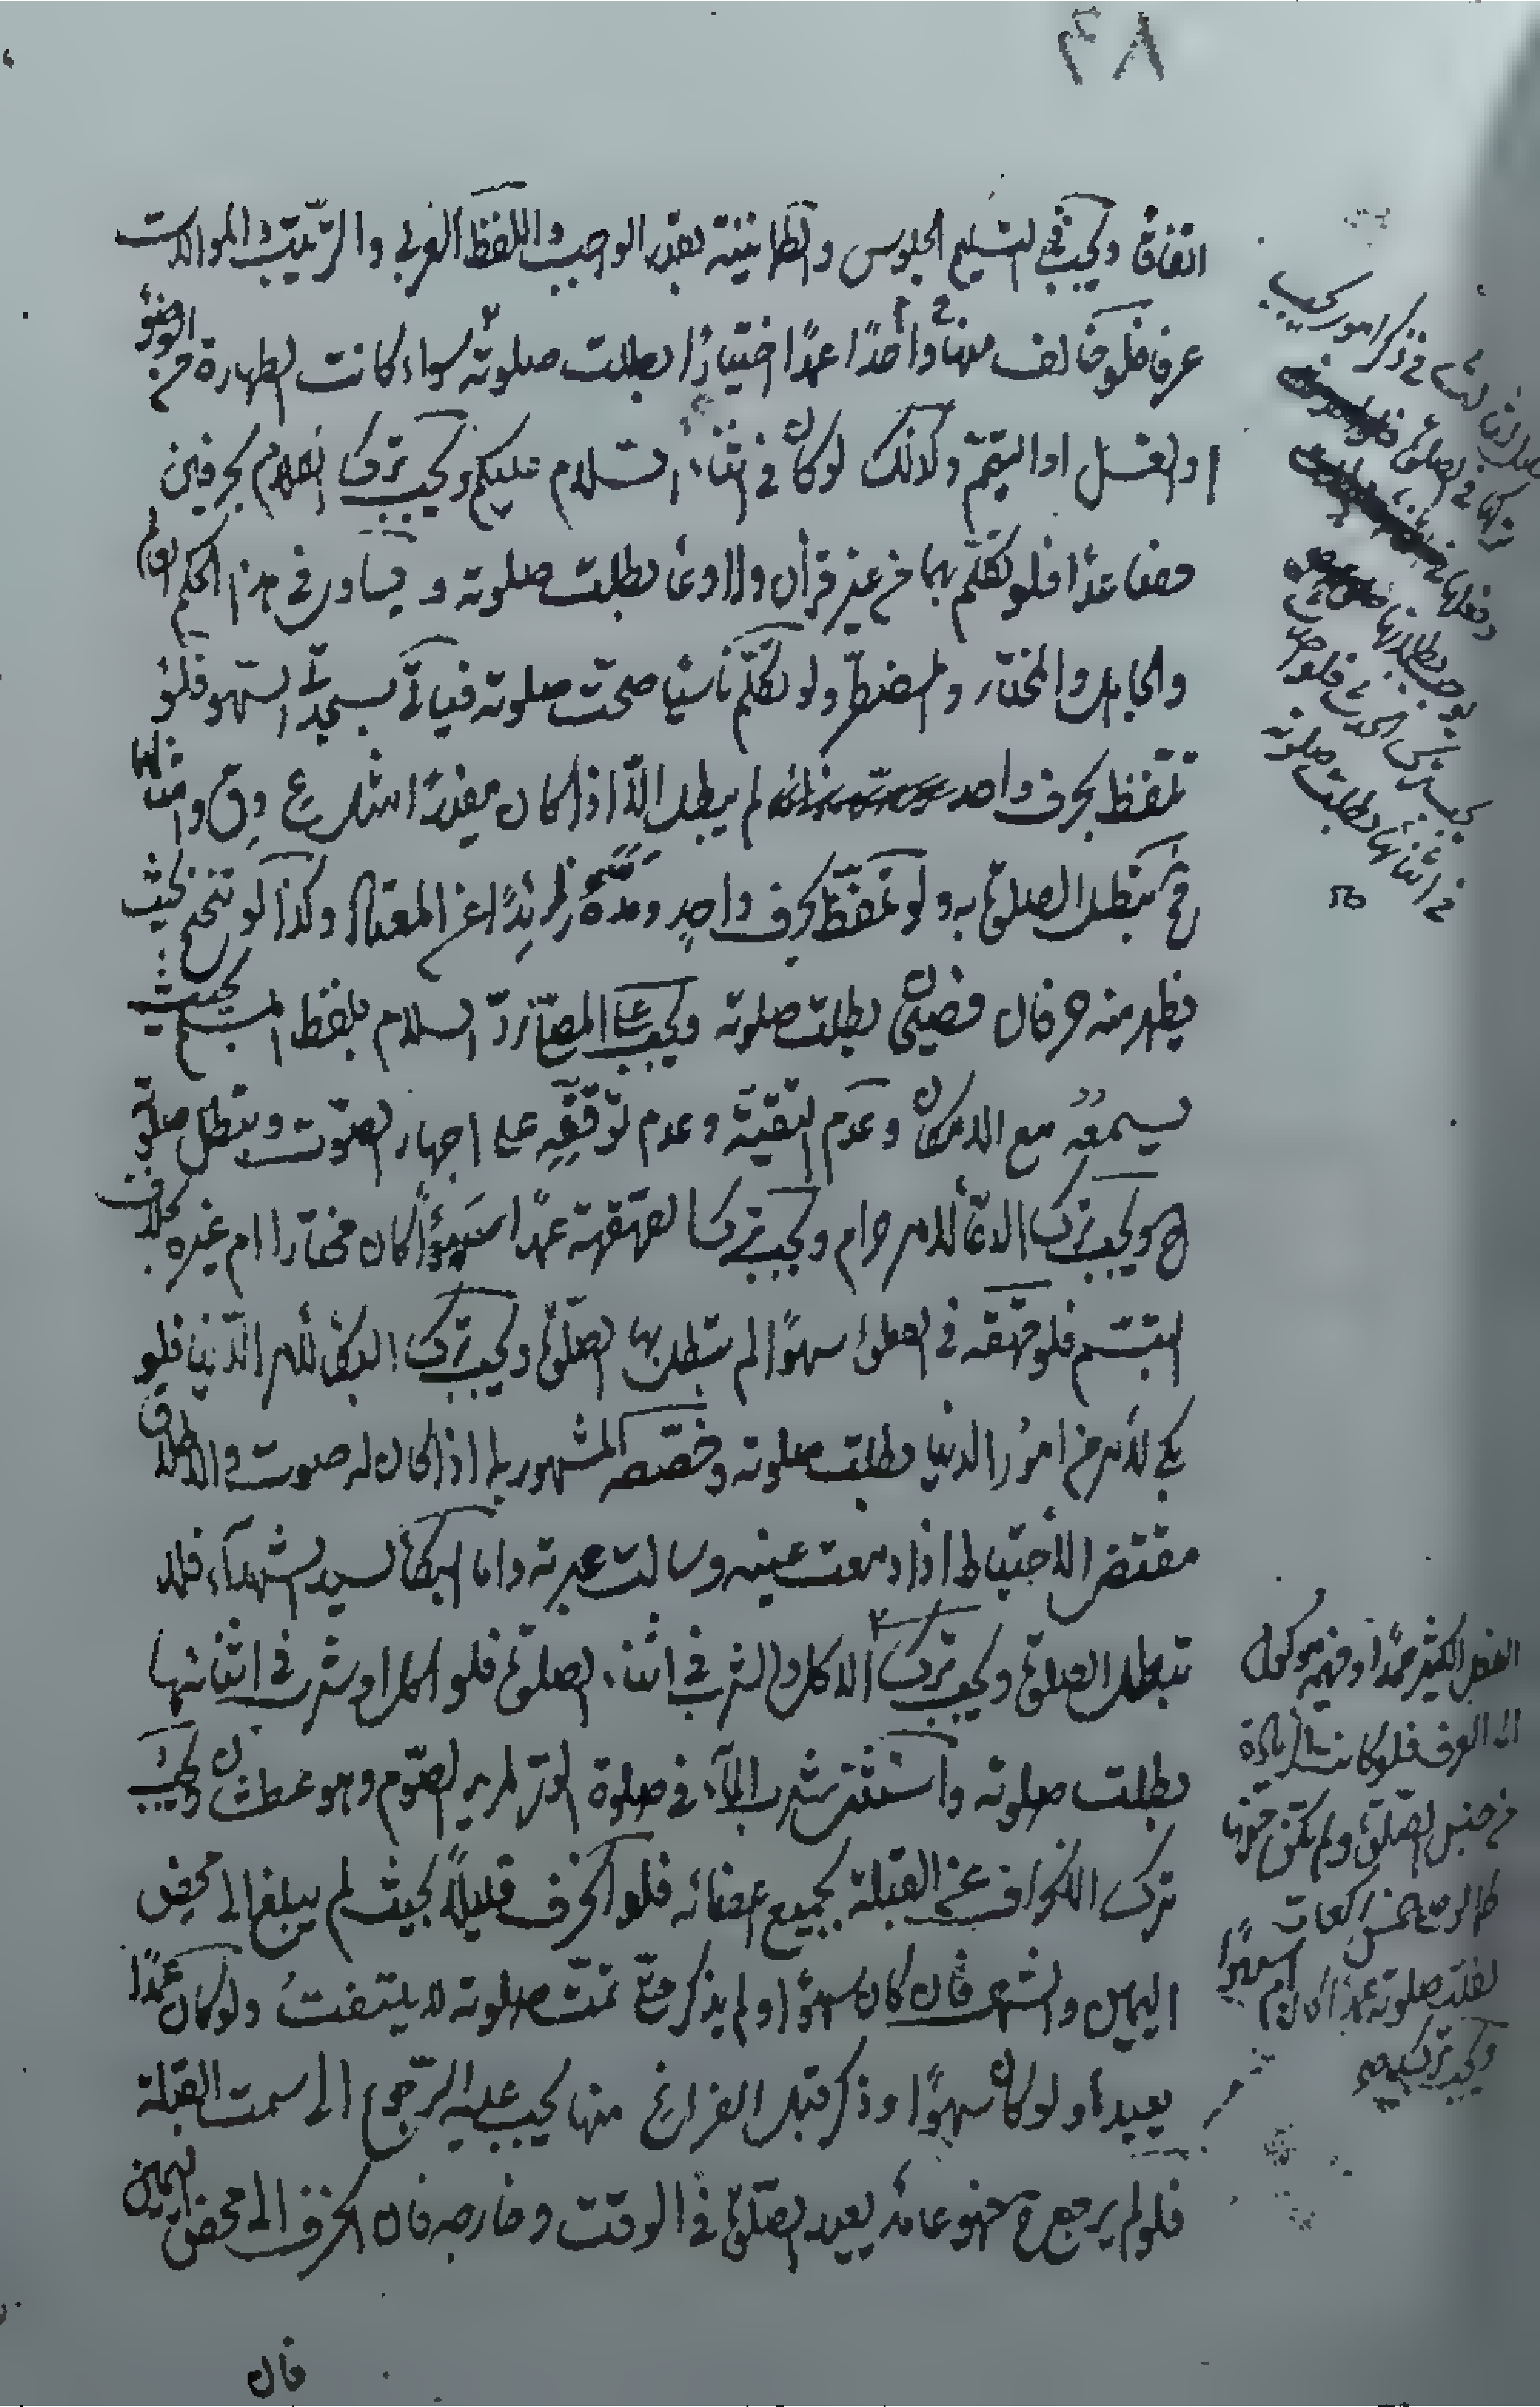 ٤٨
اتفاقا ويجب في التسليم الجلوس والطمانينة بقدر الواجب واللفظ العربي والترتيب والموالات
عرفا فلو خالف منها واحدًا عمدًا اختيارًا بطلت صلوته سواء كانت الطهارة من الوضوء
او الغسل او التيمّم وكذلك لو كان في اثناء السلام عليكم ويجب ترك الكلام بحرفين
فصاعدًا فلو تكلّم بهما من غير قرآن ولا دعاء بطلت صلوته ويساوى في هذا الحكم العالم
والجاهل والمختار والمضطرّ ولو تكلّم ناسيًا صحت صلوته فياتي بسجدتي السّهو فلو
تلفّظ بحرف واحد لم يبطل الّا اذا كان مفيدًا مثل ع وق وامثالها
فح تبطل الصلوة به ولو تلفّظ بحرف واحدٍ ومدّه زائدًا عن المعتاد وكذا لو تنحنح بحيث
يظهر منه حرفان فصاعدا بطلت صلوته ويجب على المصلّي ردّ السلام بلفظ المسلم بحيث
يسمعه مع الامكان وعدم التقيّة وعدم توقفه على اجهار الصّوت وتبطل صلوته
ح ويجب ترك الدعاء لامر حرام ويجب ترك القهقهة عمدًا سواء كان مختارا ام غيره بخلاف
التبسّم فلو قهقه في الصلوة سهوًا لم تبطل بها الصّلوة ويجب ترك البكاء لامر الدّنيا فلو
بكى لامر من امور الدنيا بطلت صلوته وخصّصه المشهور بما اذا كان له صوت والاطلاق
مقتضى الاحتياط اذا دمعت عينه وسالت عبرته واما البكاء لسيد الشهداء فلا
تبطل الصلوة ويجب ترك الاكل والشرب في اثناء الصلوة فلو اكل او شرب في اثنائها
بطلت صلوته واستثنى شرب الماء في صلوة الوتر لمريد الصّوم وهو عطشان ويجب
ترك الانحراف عن القبلة بجميع اعضائه فلو انحرف قليلًا بحيث لم يبلغ الى محض
اليمين والشمال فان كان سهوًا ولم يذكر حتى تمّت صلوته لا يلتفت ولو كان عمدًا
يعيدها ولو كان سهوًا وذكر قبل الفراغ منها يجب عليه الرّجوع الى سمت القبلة
فلو لم يرجع ح فهو عامد يعيد الصّلوة في الوقت وخارجه فان انحرف الى محض اليمين
فان
الثالث في ذكر امور يجب
تركها في الصلوة
يجب ترك الحدث فلو احدث
في اثنائها بطلت صلوته
صح
الفعل الكثير عمدًا وفيه موكول
الى العرف فلو كانت الزيادة
من جنس الصّلوة ولم تكن
كما لو صلى خمس ركعات
بطلت صلوته عمدًا كان ام سهوًا
ويجب ترك